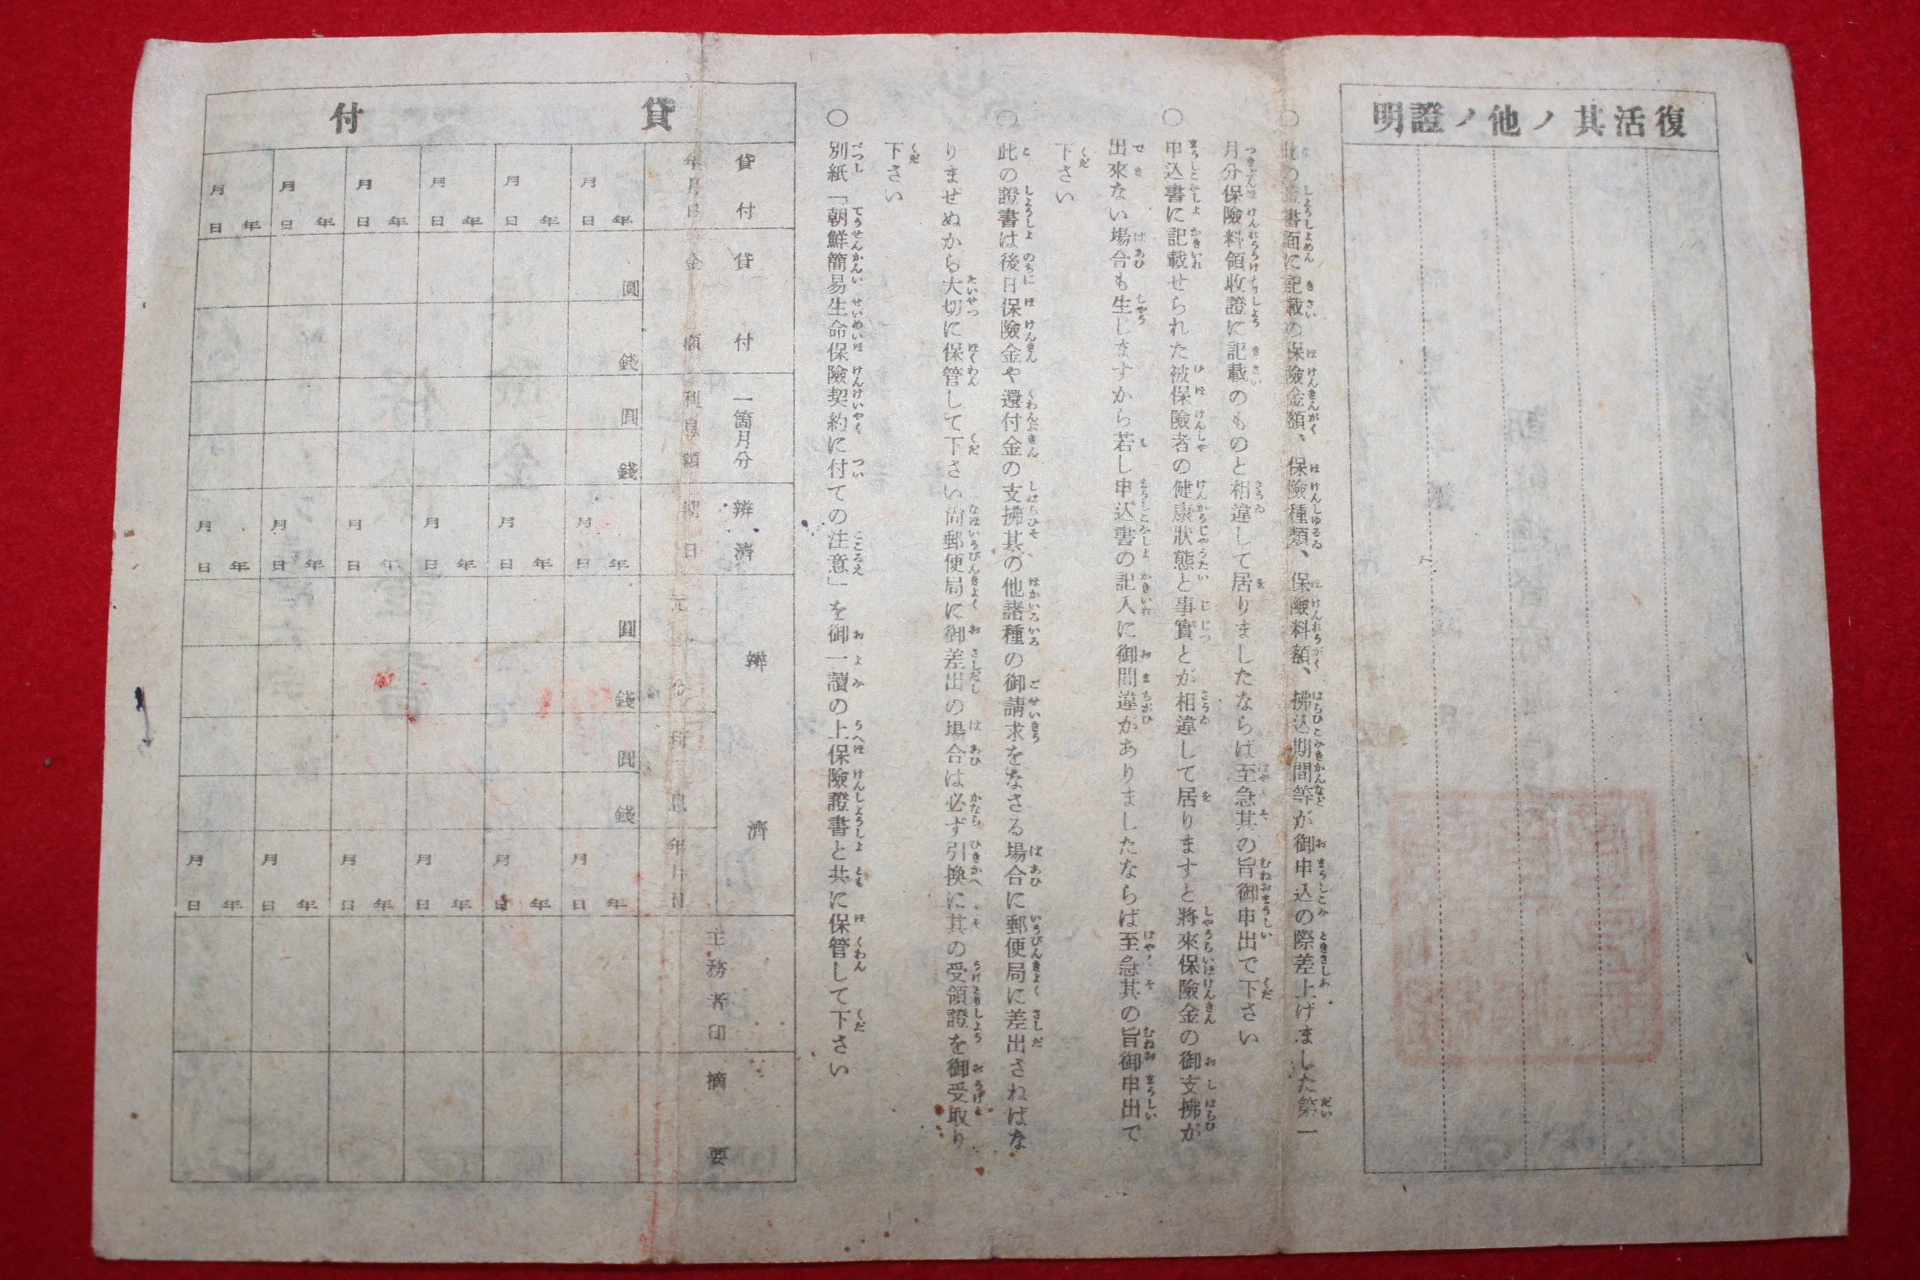 復活其ノ他ノ證明
○此の證書面に記載の保險金額、保險種類、保險料額、拂込期間等が御申込の際差上げました第一
月分保險料領收證に記載のものと相違して居りましたならば至急其の旨御申出で下さい
○申込書に記載せられた被保險者の健康狀態と事實とが相違して居りますと將來保險金の御支拂が
出來ない場合も生しますから若し申込書の記入に御間違がありましたならば至急其の旨御申出で
下さい
○此の證書は後日保險金や還付金の支拂其の他諸種の御請求をなさる場合に郵便局に差出さねばな
りませぬから大切に保管して下さい尙郵便局に御差出の場合は必ず引換に其の受領證を御受取り
下さい
別紙「朝鮮簡易生命保險契約に付ての注意」を御一讀の上保險證書と共に保管して下さい
貸付
貸付年月日
貸付金額
一箇月分利息額
辨濟期日
辨濟
元金
利息
年月日
主務者印
摘要
年月日 年月日 年月日 年月日 年月日 年月日
圓
錢
圓
錢
年月日 年月日 年月日 年月日 年月日 年月日
圓
錢
圓
錢
年月日 年月日 年月日 年月日 年月日 年月日